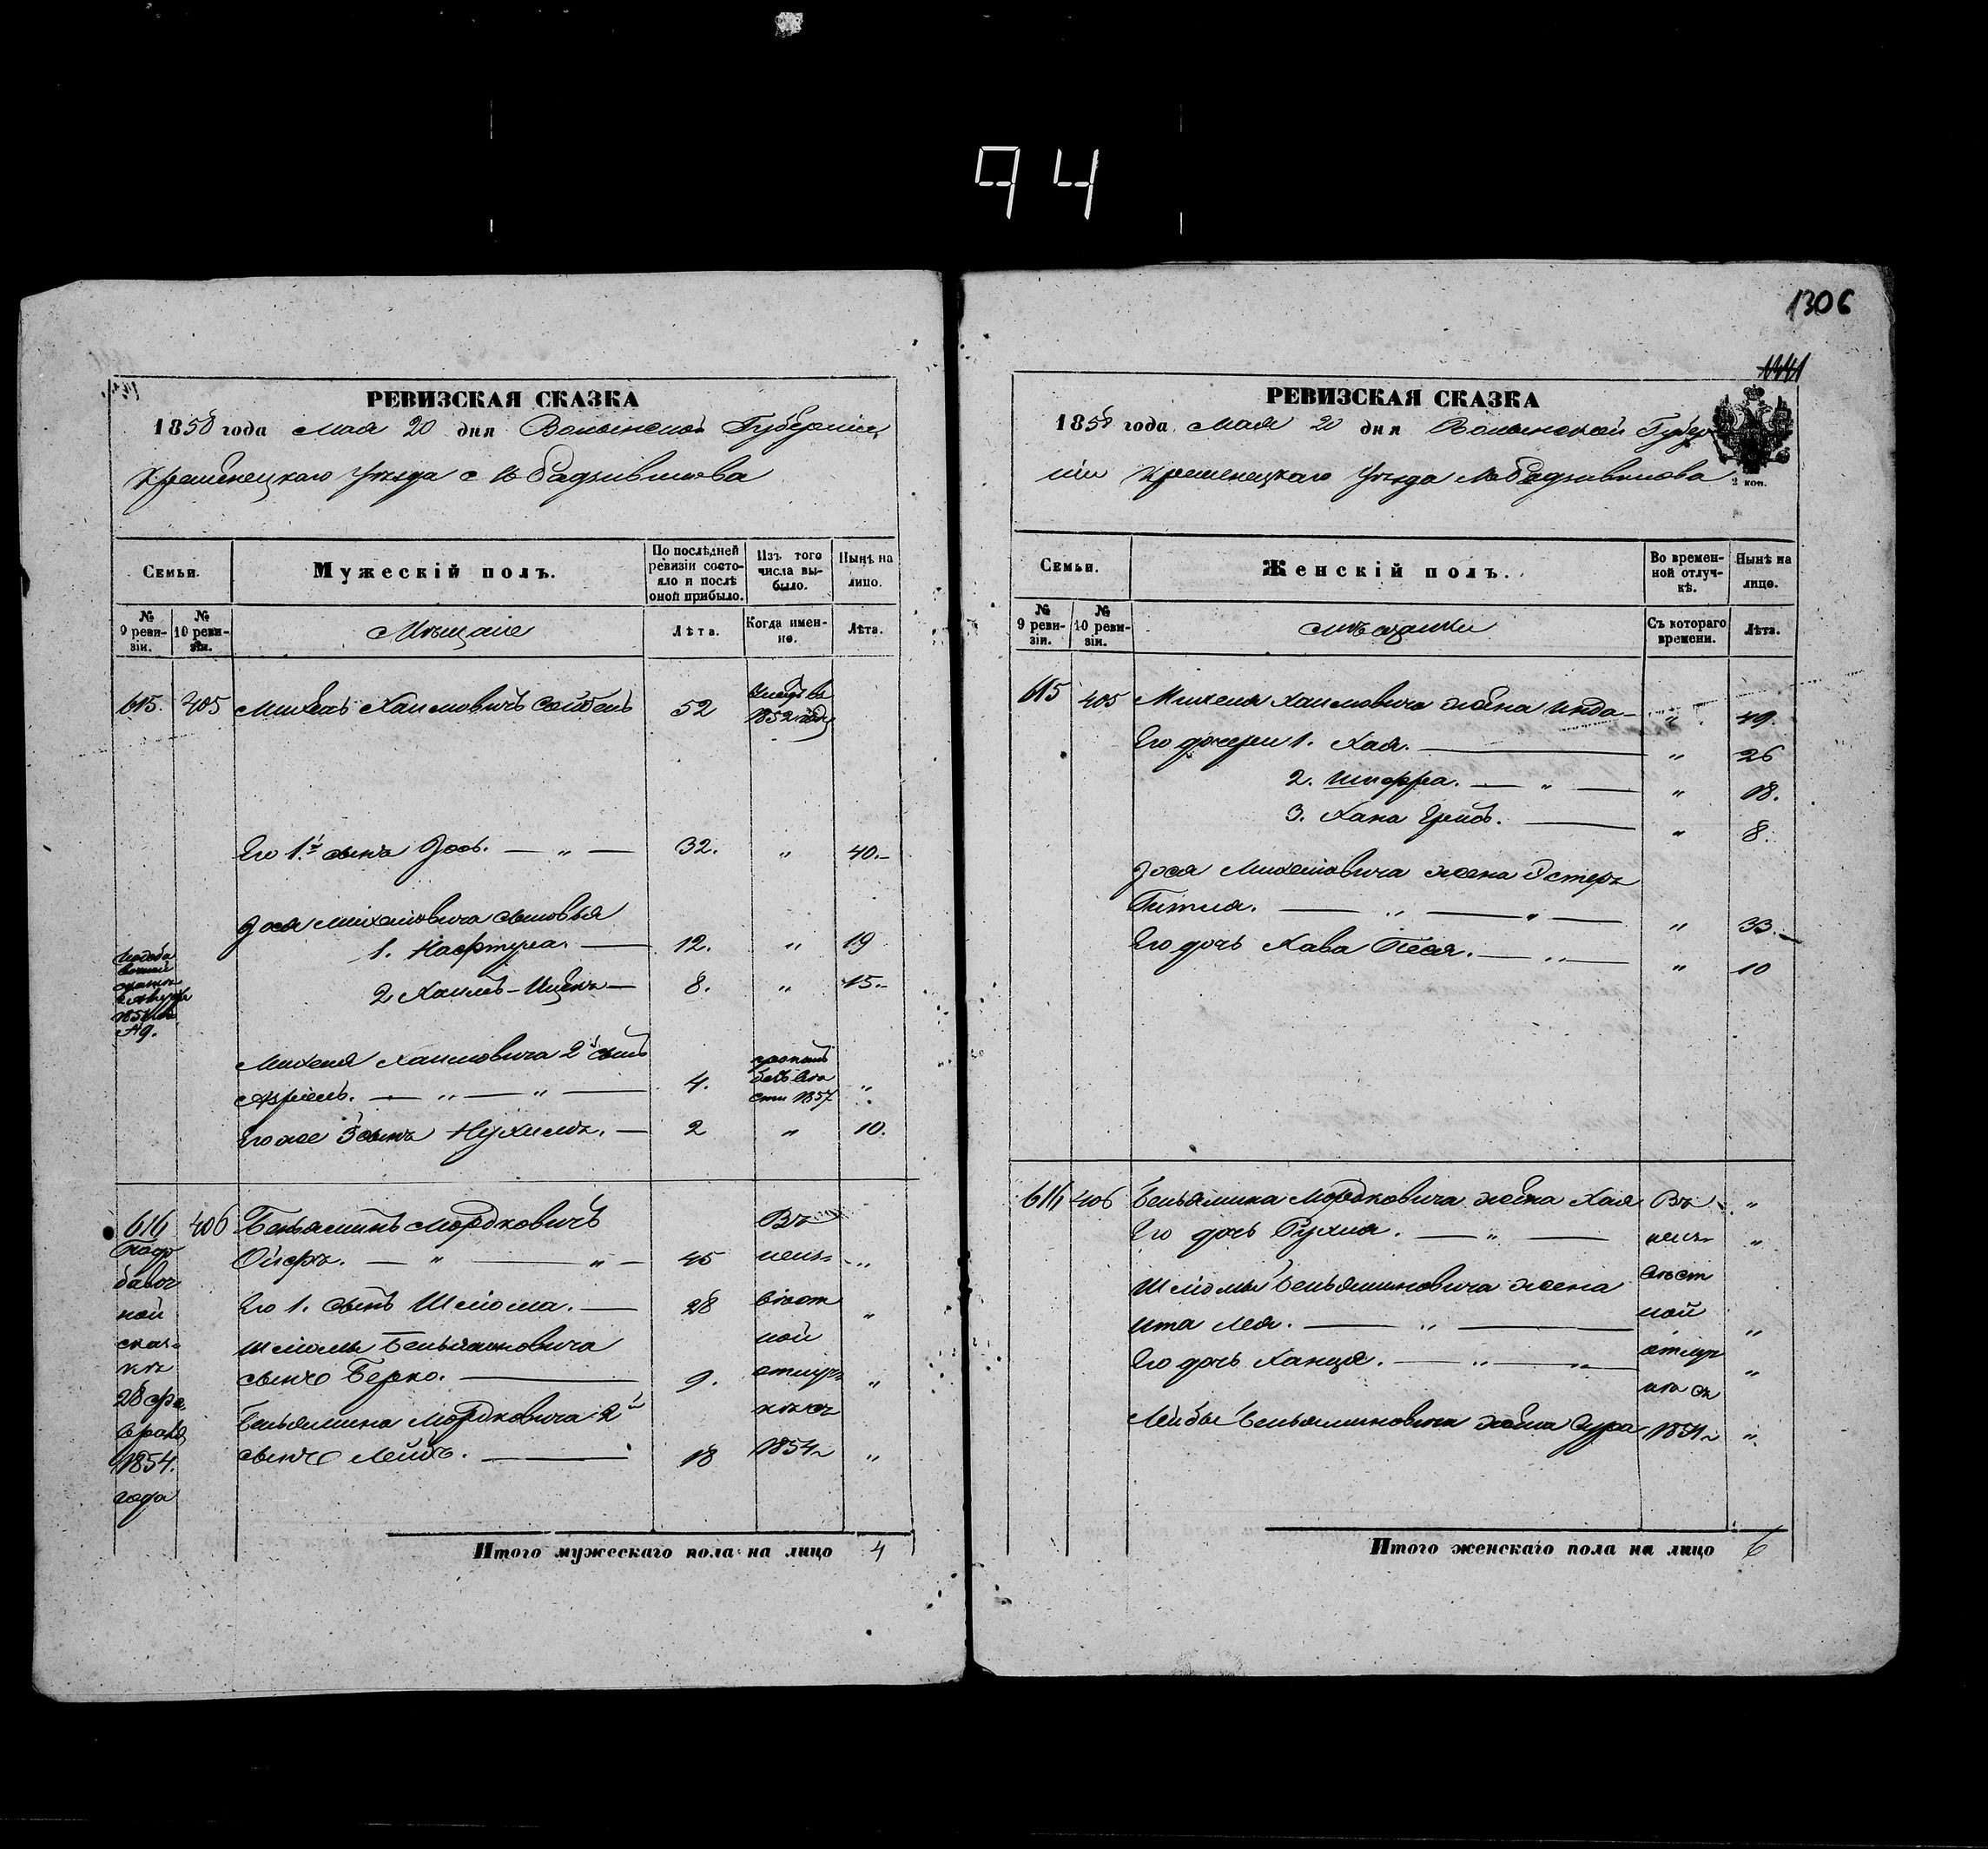 94
1306
РЕВИЗСКАЯ СКАЗКА
1858 года мая 20 дня Волынской Губернии
Кременецкаго Уезда м Радзивилова
Семьи.
Мужескій полъ.
По послѣдней ревизіи состояло и послѣ оной прибыло.
Изъ того числа выбыло.
Нынѣ на лицо.
№ 9 ревизіи.
№ 10 ревизіи.
Мѣщане
Лѣта.
Когда именно.
Лѣта.
615. 405 Михель Хаимовичъ 52 1852 году
Его 1й сынъ Іось. — " — 32. " 40.
Іося Михелювича сыновья
1. Нафтула. — 12. " 19
2. Хаимъ-Ицекъ — 8. " 15.
Михеля Хаимовича 2й сынъ
Азріель. — " — " — 4. 1857 "
Его же 3 сынъ Нухимъ. — 2 " 10.
616 406 Беньяминъ Мордковичъ Въ
Ойсеръ. — " — " — 45 неиз- "
Его 1. сынъ Шлиома. — 28 вѣст "
Шлиомы Беньяминовича ной
сынъ Берко. — 9. отлуч "
Беньямина Мордковича 2й кѣ съ
сынъ Лейбъ. — 18 1854 "
По до
бавоч
ной
сказ-
кѣ
28 фе
враля
1854.
года
Итого мужескаго пола на лицо 4
РЕВИЗСКАЯ СКАЗКА
1858 года мая 20 дня Волынской Губер
ніи Кременецкаго Уезда м Радзивилова
2 коп.
Семьи.
Женскій полъ.
Во временной отлучкѣ.
Нынѣ на лицо.
№ 9 ревизіи.
№ 10 ревизіи.
Мѣщанки
Съ котораго времени.
Лѣта.
615 405 Михеля Хаимовича жена Инда " 49.
Его дочери 1. Хая. — " 26
2. Шифра. — " — " 18.
3. Хана Брейна. — " 8.
Іося Михелювича жена Эстеръ
Гитля. — " — " — " 33.
Его дочь Хава Песя. — " — " 10
616 406 Беньямина Мордковича жена Хая Въ "
Его дочь Рухля. — " — неиз- "
Шлиомы Беньяминовича жена вѣст
Ита Лея. — " — ной "
Его дочь Ханця. — " — " — отлуч "
кѣ съ
Лейбы Беньяминовича жена Сура 1854 "
Итого женскаго пола на лицо 6